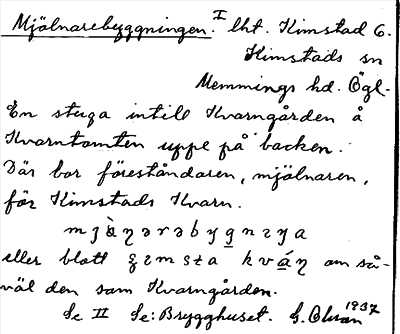 Mjölnarebyggningen. I lht. Kimstad 6.
Kimstads sn
Memmings hd. Ögl.
En stuga intill Kvarngården å
Kvarntomten uppe på backen.
Där bor föreståndaren, mjölnaren,
för Kimstads Kvarn.
eller blott kváṇ om så-
väl den som Kvarngården.
Se II Se: Brygghuset. 1937